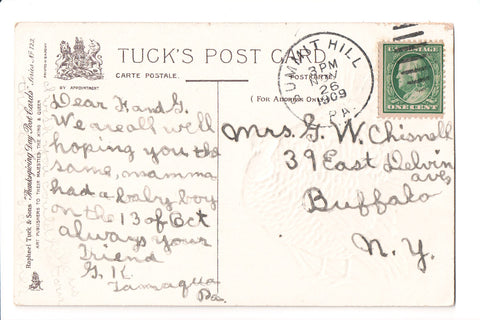 TUCK'S POST CARD
CARTE POSTALE.
(FOR ADDRESS ONLY)
BY APPOINTMENT
Raphael Tuck & Sons' "Thanksgiving Day Post Cards" Series No. 123.
ART PUBLISHERS TO THEIR MAJESTIES THE KING & QUEEN
SUMMIT HILL
3 PM
NOV
26
1909
PA.
U.S. POSTAGE
ONE CENT
Dear F and G.
We are all well
hoping you the
same, mamma
had a baby boy
on the 13 of Oct
always your
Friend
G. K.
Tamaqua
Pa.
Mrs. G. W. Chisnell
39 East Delvin
ave
Buffalo
N. Y.